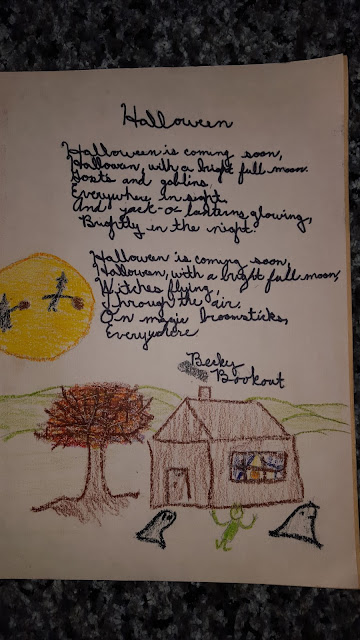 Halloween
Halloween is coming soon,
Hallowen, with a bright full moon.
Gosts and goblins,
Everywhere in sight,
And jack-o-lanterns glowing,
Brightly in the night.
Hallowen is coming soon,
Hallowen, with a bright full moon,
Witches flying,
Through the air,
On magic broomsticks,
Everywhere
Becky
Bookout